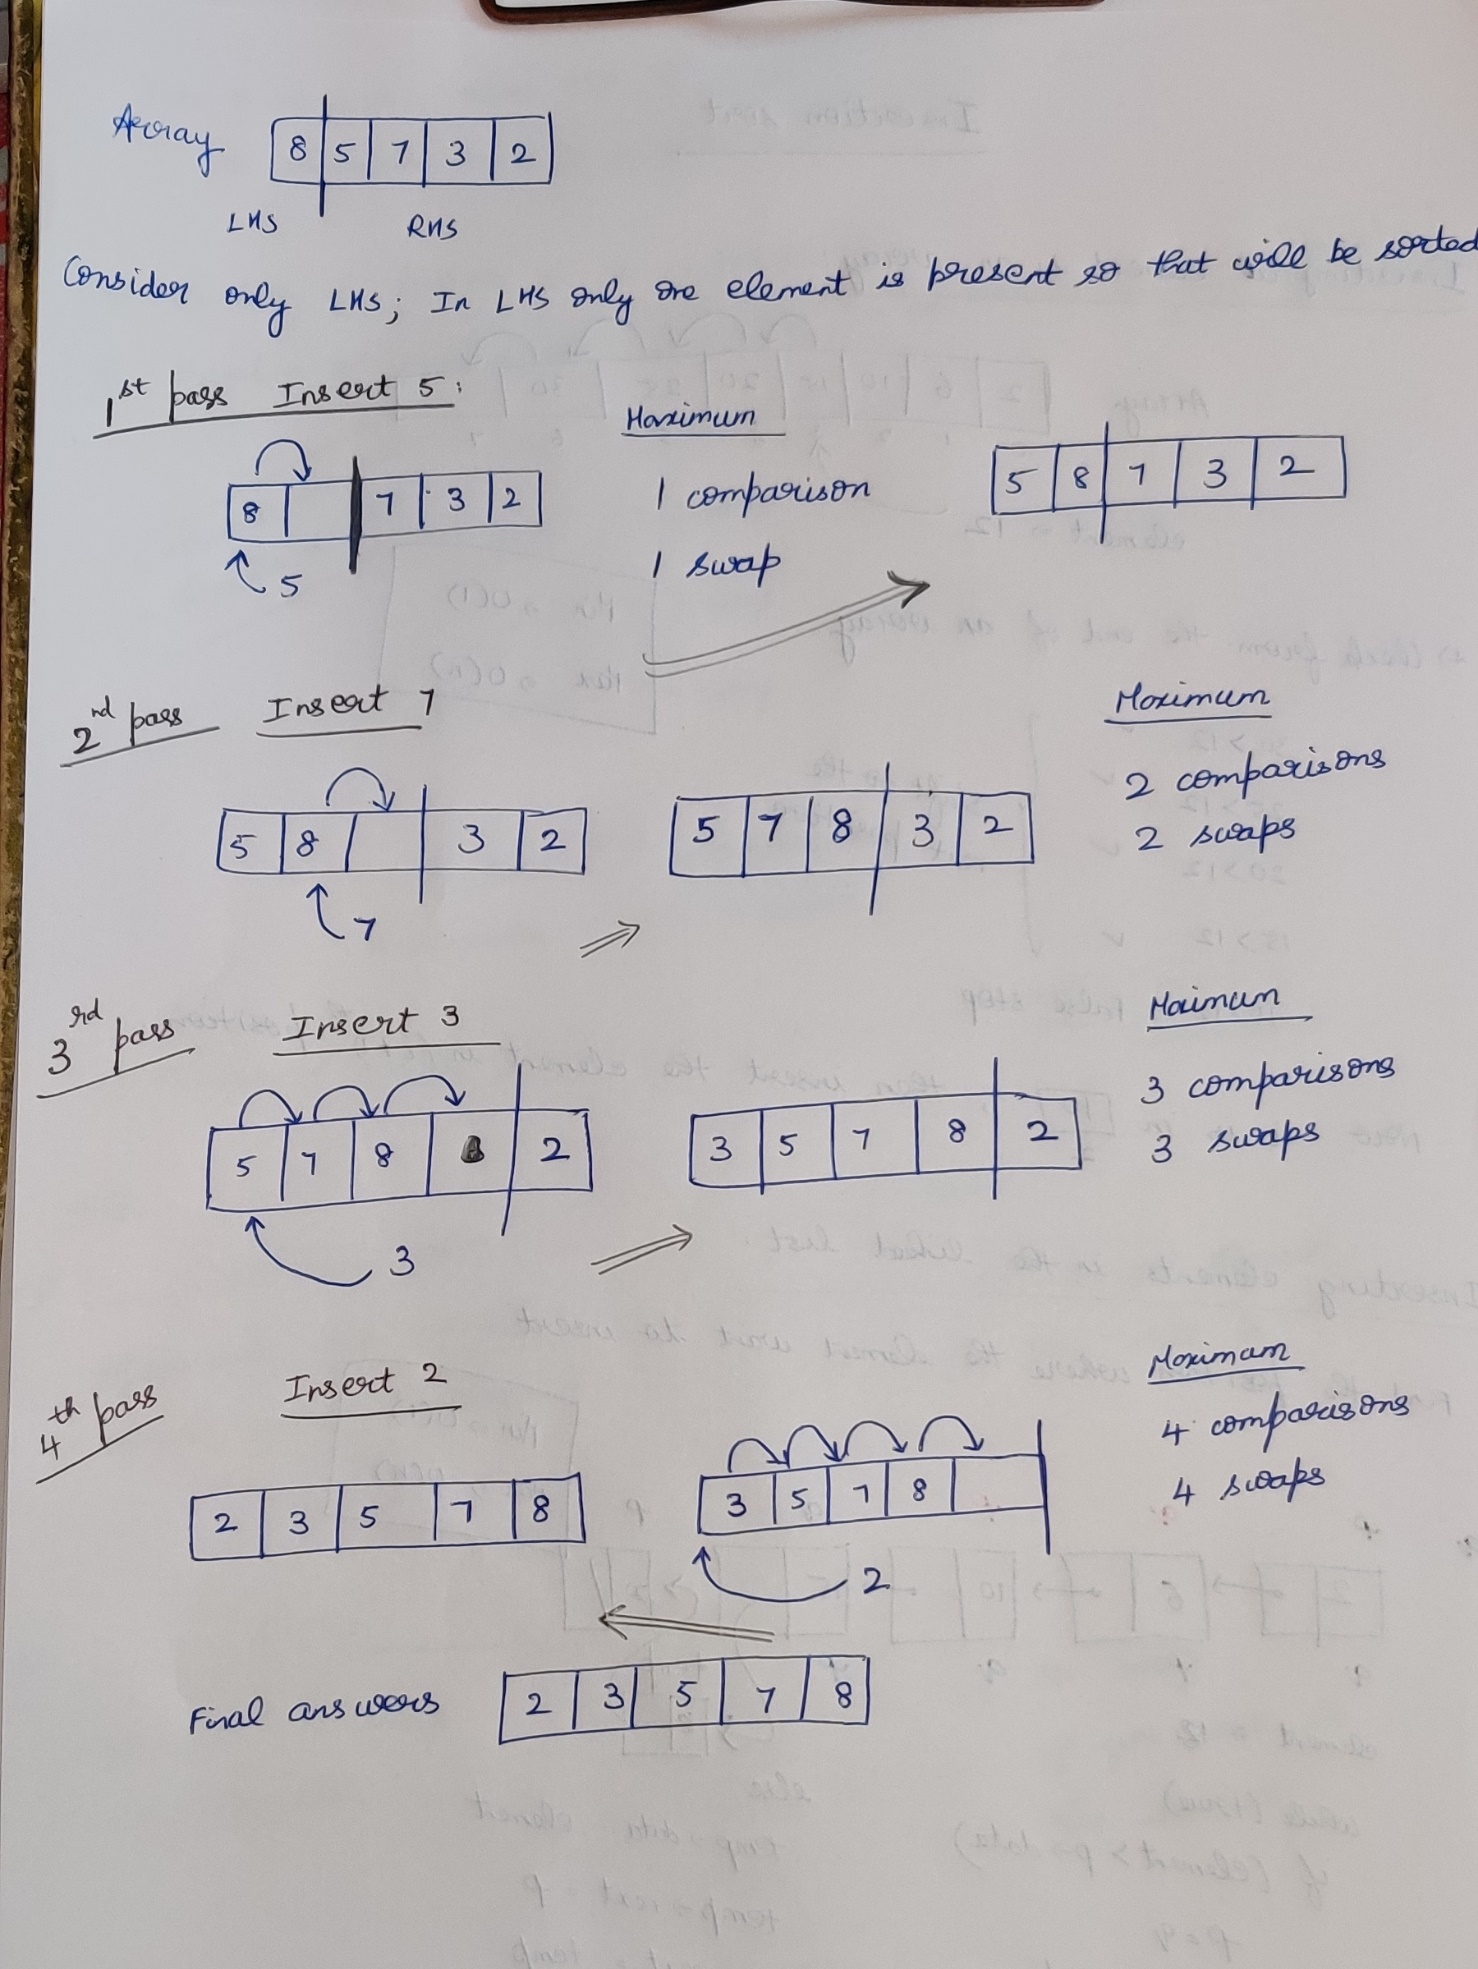 Array 8 5 7 3 2
LHS RHS
Consider only LHS; In LHS only one element is present so that will be sorted
1st pass Insert 5:
Maximum
8 7 3 2
5
1 comparison
1 swap
5 8 7 3 2
2nd pass Insert 7
Maximum
5 8 3 2
7
5 7 8 3 2
2 comparisons
2 swaps
3rd pass Insert 3
Maximum
5 7 8 2
3
3 5 7 8 2
3 comparisons
3 swaps
4th pass Insert 2
Maximum
2 3 5 7 8
3 5 7 8
2
4 comparisons
4 swaps
Final answers 2 3 5 7 8